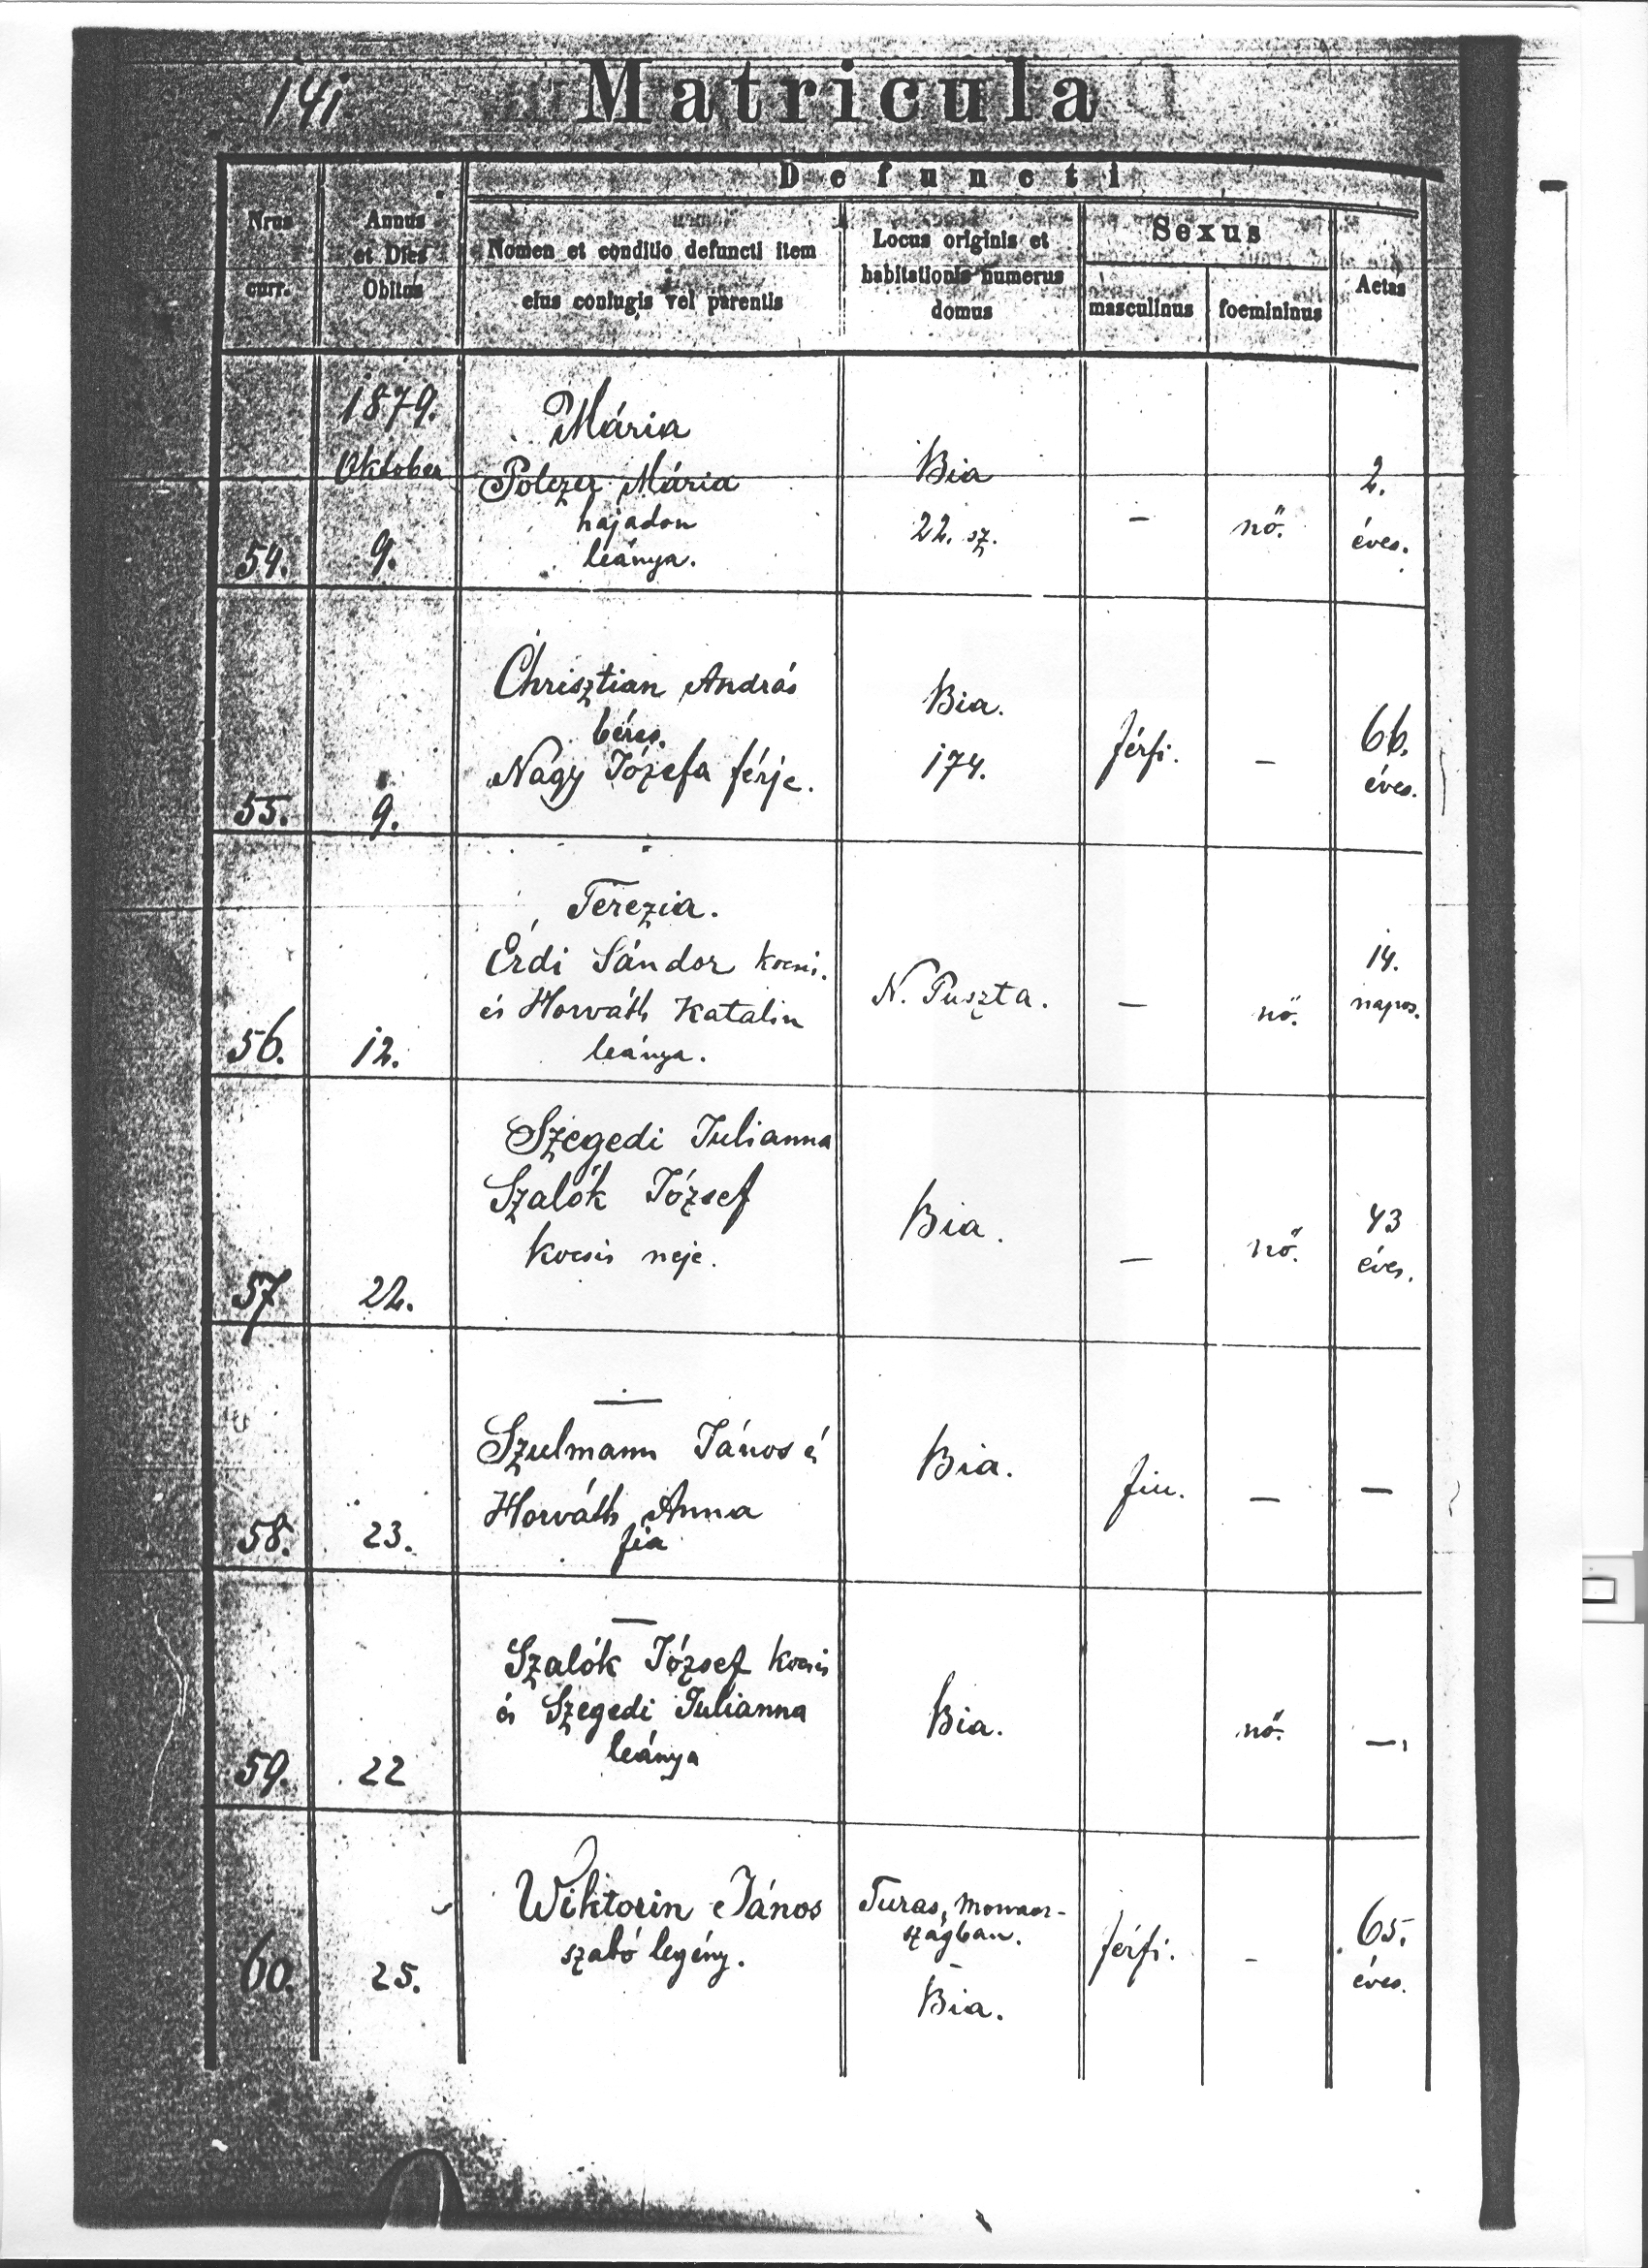 141.
Matricula
Defuncti
Nrus
curr.
Annus
et Dies
Obitus
Nomen et conditio defuncti item
eius coniugis vel parentis
Locus originis et
habitationis numerus
domus
Sexus
masculinus
foemininus
Aetas
1879.
Oktober
54.
9.
Mária
Polczer Mária
hajadon
leánya.
Bia
22. sz.
–
nő.
2.
éves.
55.
9.
Chrisztian András
béres.
Nagy Józefa férje.
Bia.
174.
férfi.
–
66.
éves.
56.
12.
Terezia.
Érdi Sándor kocsis.
és Horváth Katalin
leánya.
N. Puszta.
–
nő.
14.
napos.
57
22.
Szegedi Julianna
Szalók József
kocsis neje.
Bia.
–
nő.
43
éves.
58.
23.
—
Szulmann János é
Horváth Anna
fia
Bia.
fiu.
–
–
59.
22
—
Szalók József kocsis
és Szegedi Julianna
leánya
Bia.
nő.
–
60.
25.
Wiktorin János
szabó legény.
Turas,
szágban.
–
Bia.
férfi.
–
65.
éves.